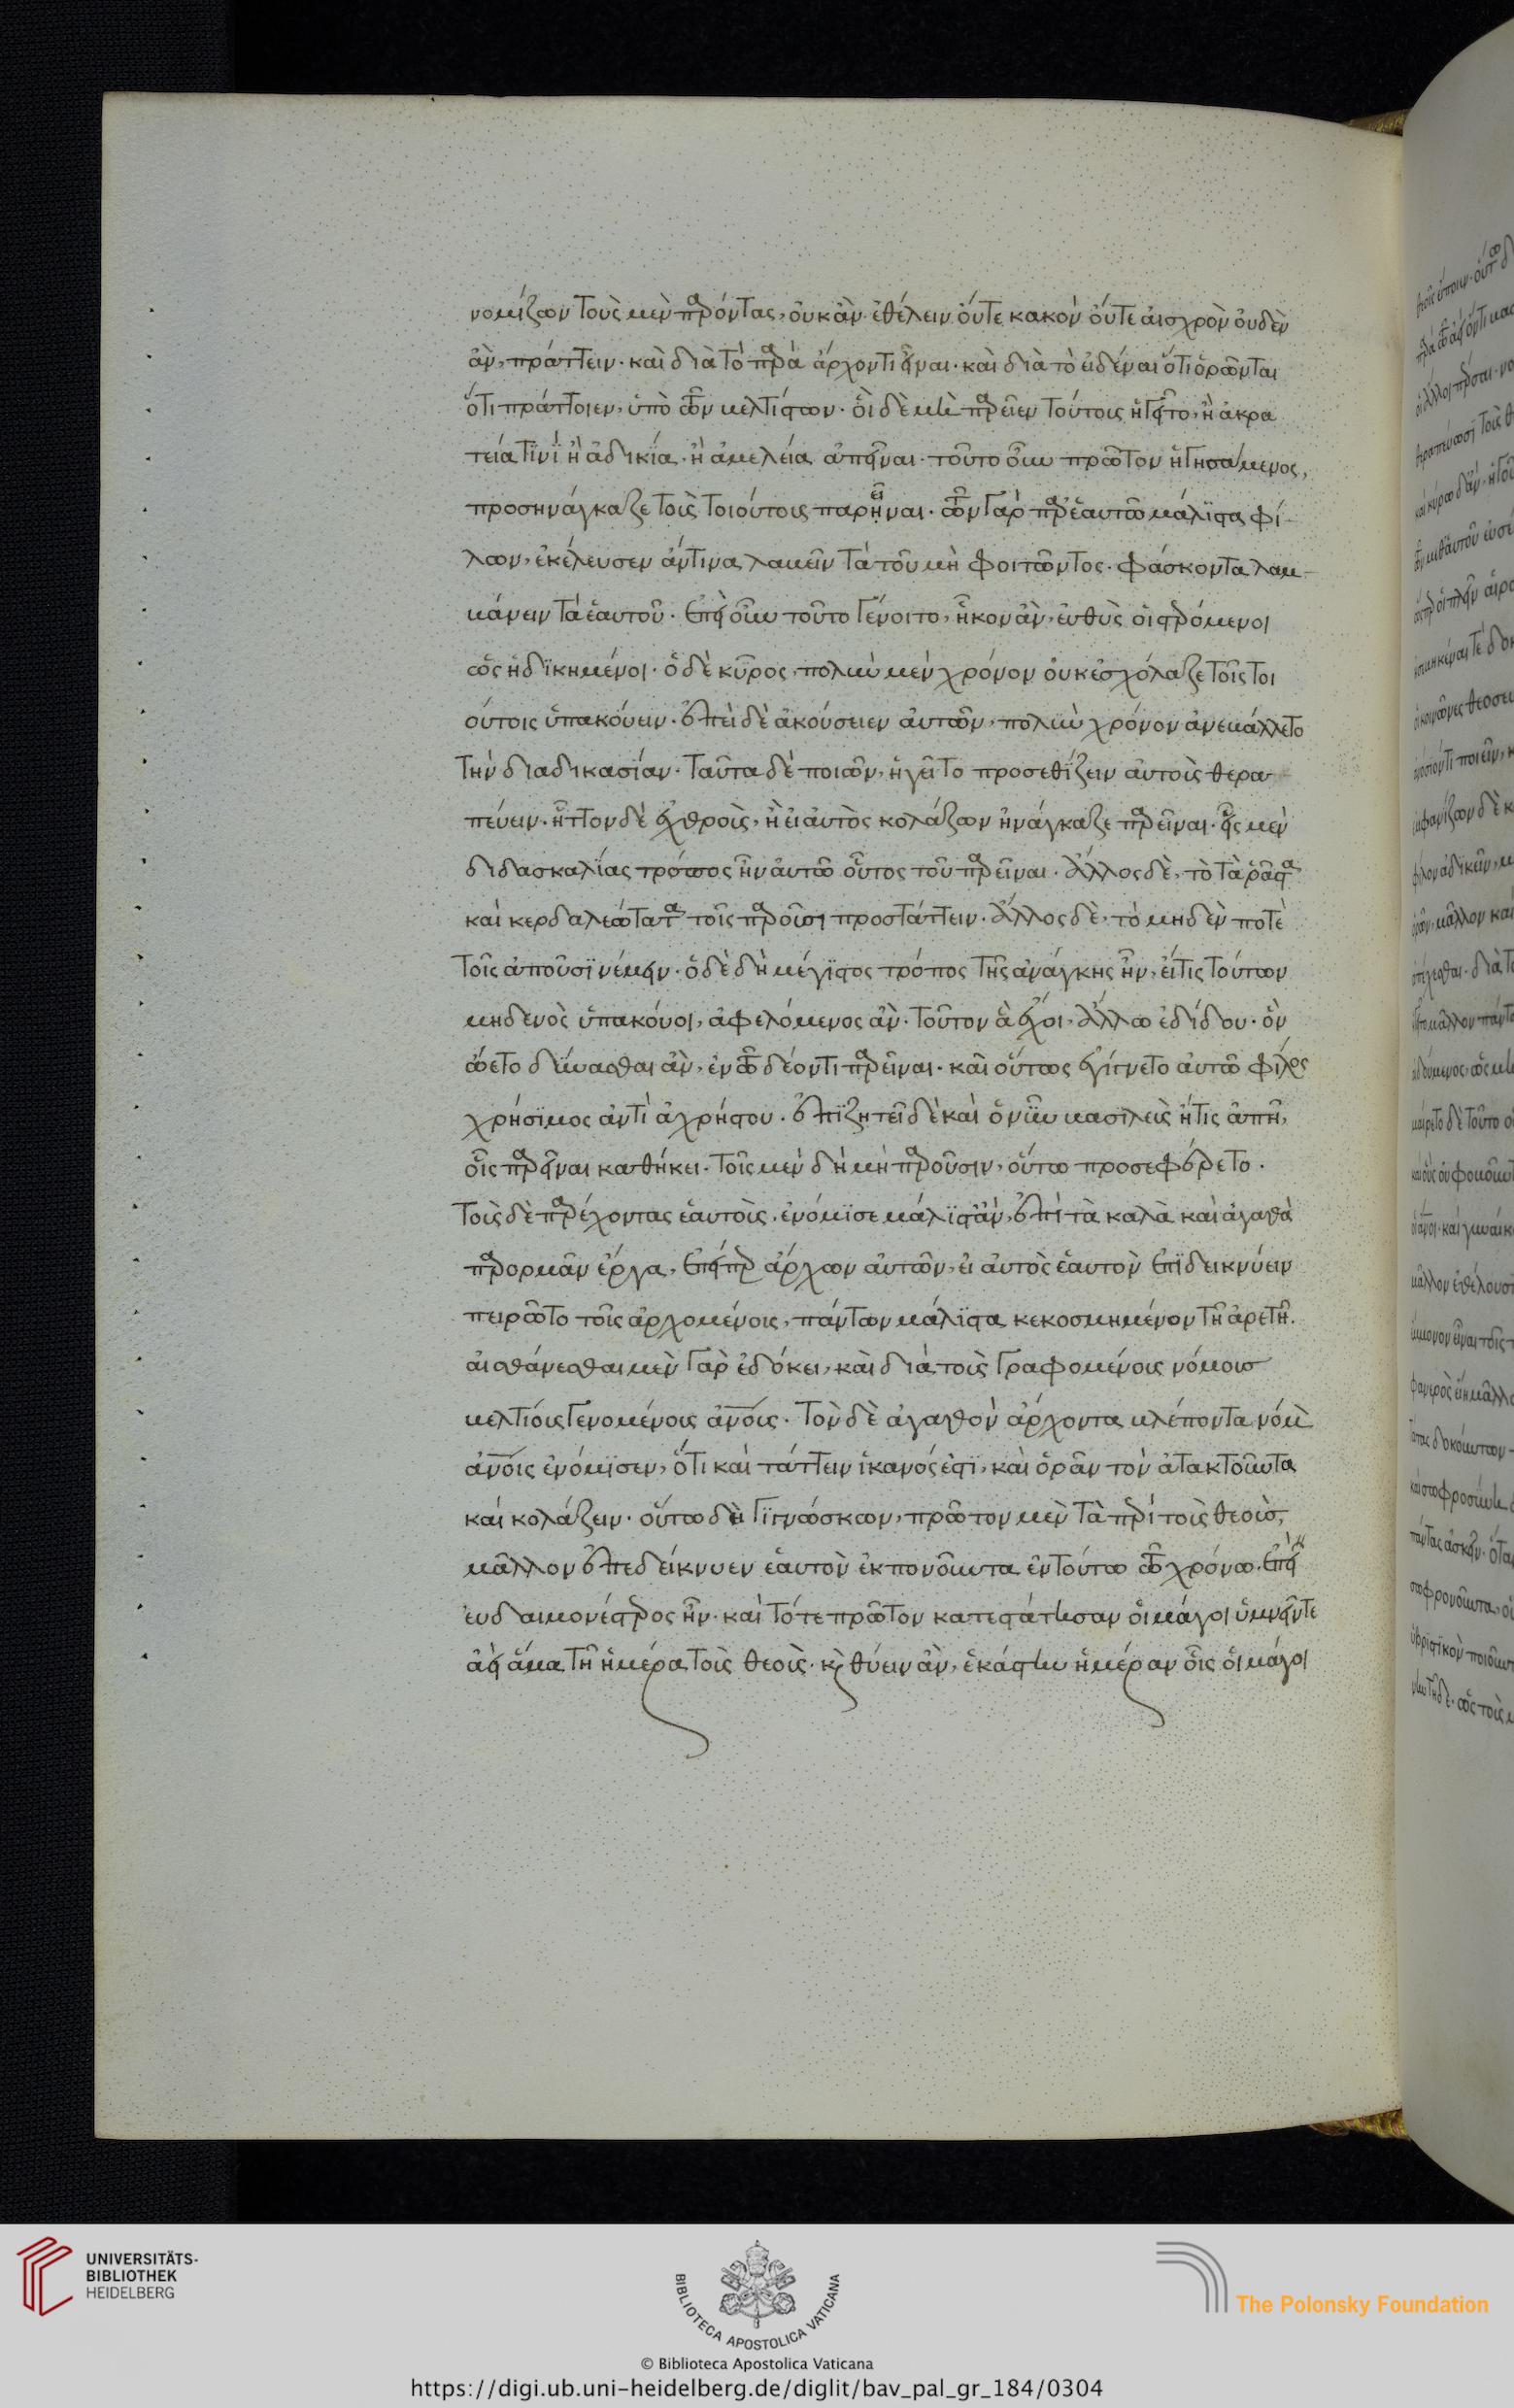 νομίζων τοὺς μὲν παρόντας, οὐκ ἂν ἐθέλειν οὔτε κακὸν οὔτε αἰσχρὸν οὐδὲν
ἂν, πράττειν· καὶ διὰ τὸ παρὰ ἄρχοντι εἶναι· καὶ διὰ τὸ εἰδέναι ὅτι ὁρῶνται
ὅτι πράττοιεν, ὑπὸ τῶν βελτίστων· οἳ δὲ μὴ παρεῖεν τούτοις ἡγεῖτο, ἢ ἀκρα
τεία τινὶ ἢ ἀδικία· ἢ ἀμελεία ἀπεῖναι· τοῦτο οὖν πρῶτον ἡγησάμενος,
προσηνάγκαζε τοὺς τοιούτους παρεῖναι· τῶν γὰρ παρ' ἑαυτῶ μάλιστα φί
λων, ἐκέλευσεν ἄν τινα λαβεῖν τὰ τοῦ μὴ φοιτῶντος· φάσκοντα λαμ
βάνειν τὰ ἑαυτοῦ· ἐπεὶ οὖν τοῦτο γένοιτο, ἧκον ἂν, εὐθὺς οἱ στερόμενοι
ὡς ἠδικημένοι· ὁ δὲ κῦρος, πολὺν μὲν χρόνον οὐκ ἐσχόλαζε τοῖς τοι
ούτοις ὑπακούειν· ἐπεὶ δὲ ἀκούσειεν αὐτῶν, πολὺν χρόνον ἀνεβάλλετο
τὴν διαδικασίαν· ταῦτα δὲ ποιῶν, ἡγεῖτο προσεθίζειν αὐτοὺς θερα
πεύειν· ἧττον δὲ ἐχθροὺς, ἢ εἰ αὐτὸς κολάζων ἠνάγκαζε παρεῖναι· εἷς μὲν
διδασκαλίας τρόπος ἦν αὐτῶ οὗτος τοῦ παρεῖναι· ἄλλος δὲ, τὸ τὰ ῥᾶστα
καὶ κερδαλεώτατα τοῖς παροῦσι προστάττειν· ἄλλος δὲ, τὸ μηδὲν ποτὲ
τοῖς ἀποῦσι νέμειν· ὁ δὲ δὴ μέγιστος τρόπος τῆς ἀνάγκης ἦν, εἴ τις τούτων
μηδενὸς ὑπακούοι, ἀφελόμενος ἂν· τοῦτον ἃ ἔχοι, ἄλλω ἐδίδου· ὃν
ὤετο δύνασθαι ἂν, ἐν τῶ δέοντι παρεῖναι· καὶ οὕτως ἐγίγνετο αὐτῶ φίλος
χρήσιμος ἀντὶ ἀχρήστου· ἐπιζητεῖ δὲ καὶ ὁ νῦν βασιλεὺς ἤ τις ἀπῆ,
οἷς παρεῖναι καθήκει· τοῖς μὲν δὴ μὴ παροῦσιν, οὕτω προσεφέρετο·
τοὺς δὲ παρέχοντας ἑαυτοὺς, ἐνόμισε μάλιστ' ἂν, ἐπὶ τὰ καλὰ καὶ ἀγαθὰ
παρορμᾶν ἔργα, ἐπείπερ ἄρχων αὐτῶν, εἰ αὐτὸς ἑαυτὸν ἐπιδεικνύειν
πειρῶτο τοῖς ἀρχομένοις, πάντων μάλιστα κεκοσμημένον τῆ ἀρετῆ.
αἰσθάνεσθαι μὲν γὰρ ἐδόκει, καὶ διὰ τοὺς γραφομένους νόμους
βελτίους γενομένους ἀνους· τὸν δὲ ἀγαθὸν ἄρχοντα βλέποντα νόμ
ἀνοις ἐνόμισεν, ὅτι καὶ τάττειν ἱκανός ἐστι, καὶ ὁρᾶν τὸν ἀτακτοῦντα
καὶ κολάζειν· οὕτω δὴ γιγνώσκων, πρῶτον μὲν τὰ περὶ τοὺς θεοὺς,
μᾶλλον ἐπεδείκνυεν ἑαυτὸν ἐκπονοῦντα ἐν τούτω τῶ χρόνω· ἐπεὶ
εὐδαιμονέστερος ἦν· καὶ τότε πρῶτον κατεστάθησαν οἱ μάγοι ὑμνεῖν τε
ἀεὶ ἅμα τῆ ἡμέρα τοὺς θεοὺς· κ θύειν ἂν, ἑκάστην ἡμέραν οἷς οἱ μάγοι
UNIVERSITÄTS-
BIBLIOTHEK
HEIDELBERG
BIBLIOTECA APOSTOLICA VATICANA
The Polonsky Foundation
© Biblioteca Apostolica Vaticana
https://digi.ub.uni-heidelberg.de/diglit/bav_pal_gr_184/0304